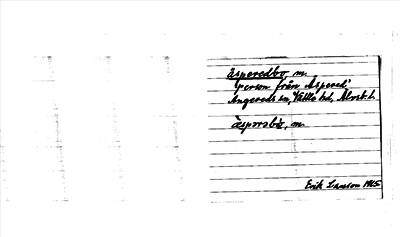 åsperedbo, m.
person från Åspered
Angereds sn, Vättle hd, Älvsb. l.
åsporsbo, m.
Erik Larsson 1965